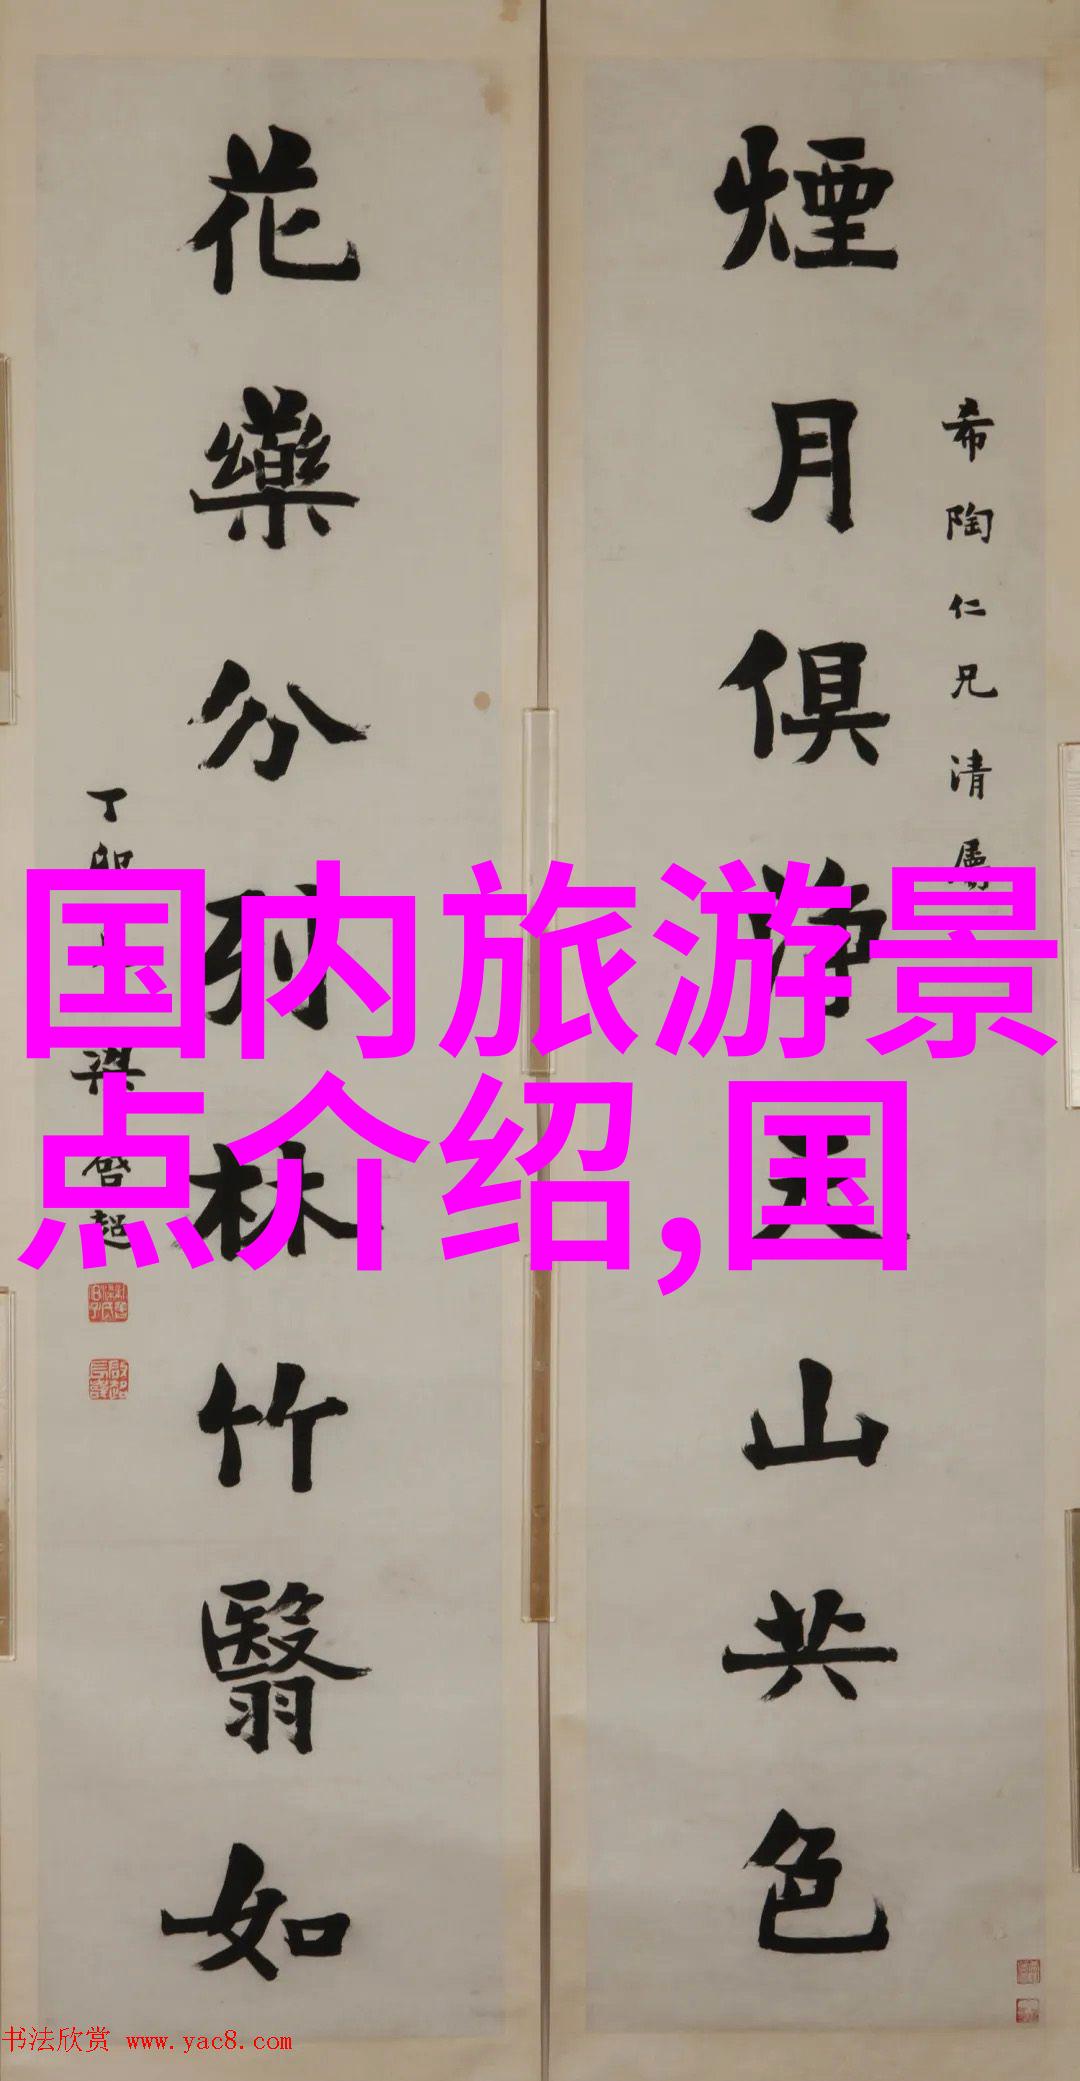 希陶仁兄清屬
煙月俱淨天山共色
花藥分列林竹翳如
丁卯 梁啓超
国内旅游景
点介绍,国
书法欣赏 www.yac8.com